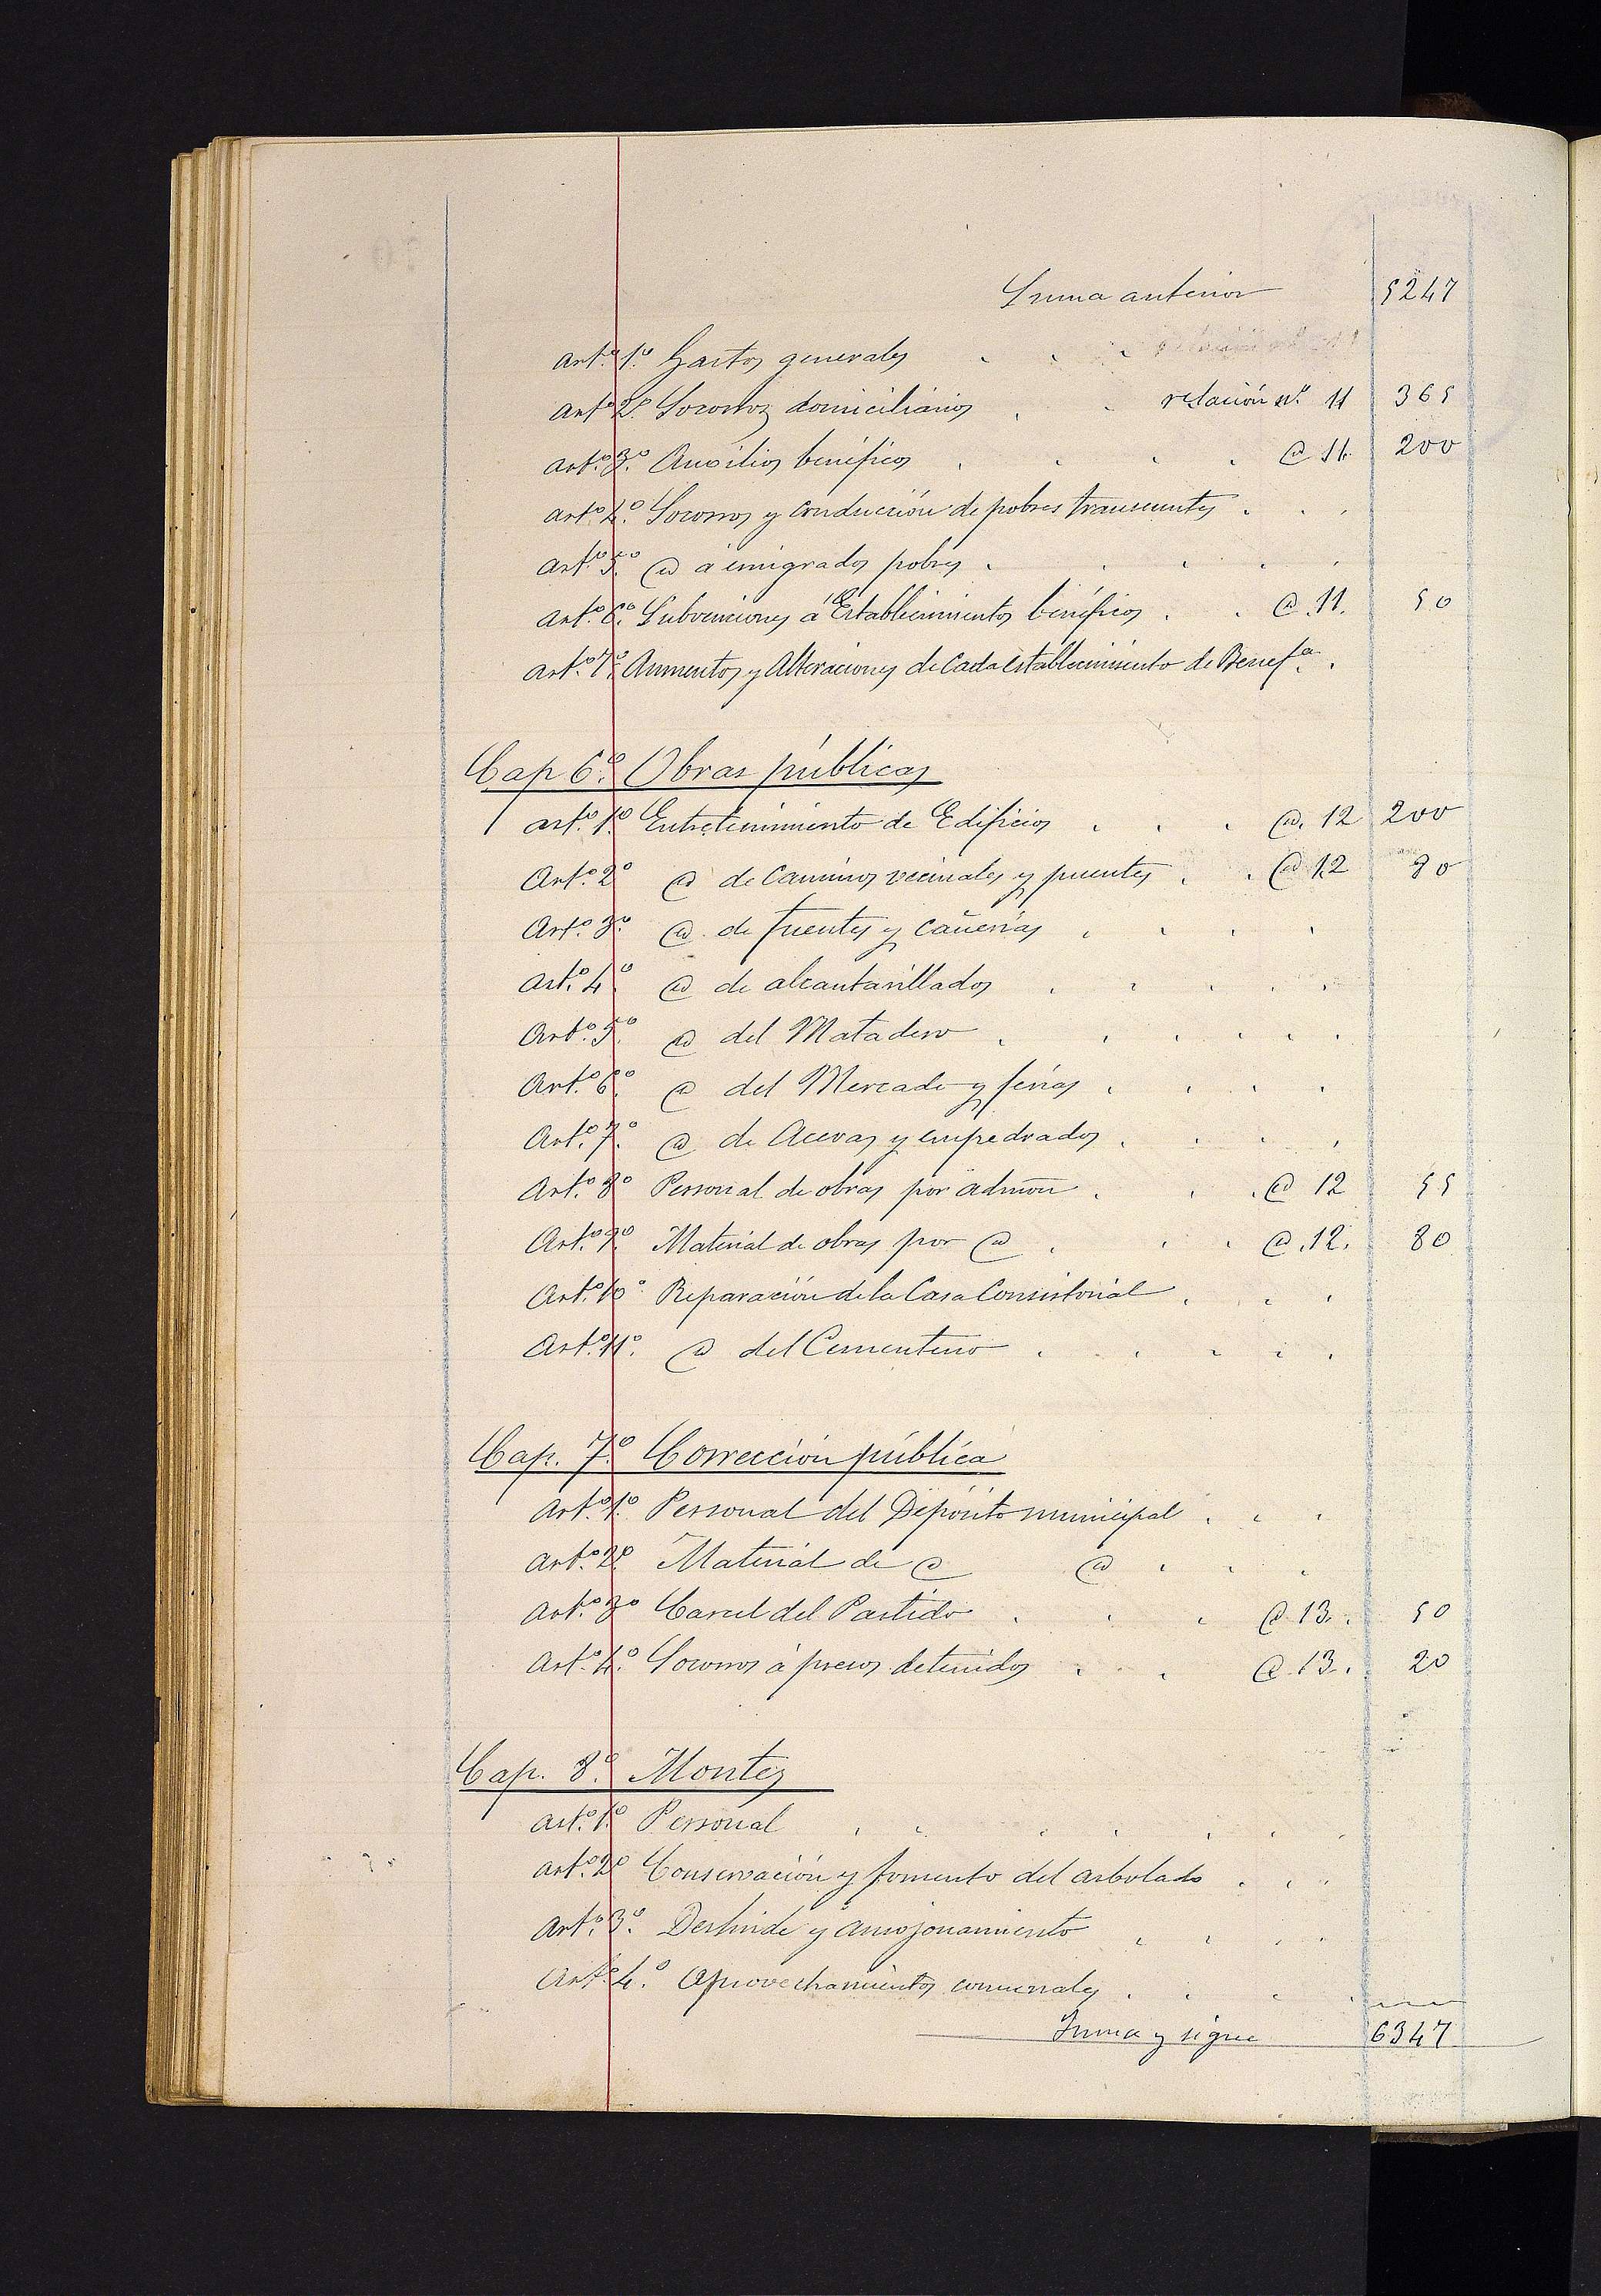 Suma anterior 5247
Artº 1º Gastos generales . . .
Artº 2º Socorros domiciliarios . . relación nº 11 365
Artº 3º Auxilios benéficos . . . . @ 11. 200
Artº 4º Socorros y conducción de pobres transeuntes . . .
Artº 5º @ á emigrados pobres . . . . .
Artº 6º Subvenciones á Establecimientos benéficos . . @ 11. 50
Artº 7º Aumentos y Alteraciones de Cada establecimiento de Benefª .
Cap 6º. Obras públicas
Artº 1º Entretenimiento de Edificios . . . @ 12 200
Artº 2º @ de Caminos vecinales y puentes . . @ 12 80
Artº 3º @ de fuentes y cañerías . . . .
Artº 4º @ de alcantarillados . . . . .
Artº 5º @ del Matadero . . . . . .
Artº 6º @ del Mercado y ferias . . . .
Artº 7º @ de Aceras y empedrados . . . .
Artº 8º Personal de obras por admon . . . @ 12 55
Artº 9º Material de obras por @ . . . @ 12. 80
Artº 10º Reparación de la Casa Consistorial . . .
Artº 11º. @ del Cementerio . . . . .
Cap. 7º Corrección pública
Artº 1º Personal del Depósito municipal . . .
Artº 2º Material de @ @ . . .
Artº 3º Carcel del Partido . . . @ 13. 50
Artº 4º Socorros á presos detenidos . . @ 13. 20
Cap. 8º Montes
Artº 1º Personal . . . . . . .
Artº 2º Conservación y fomento del arbolado . . .
Artº 3º Deslinde y amojonamiento . . . .
Artº 4º Aprovechamientos comunales . . .
Suma y sigue 6347